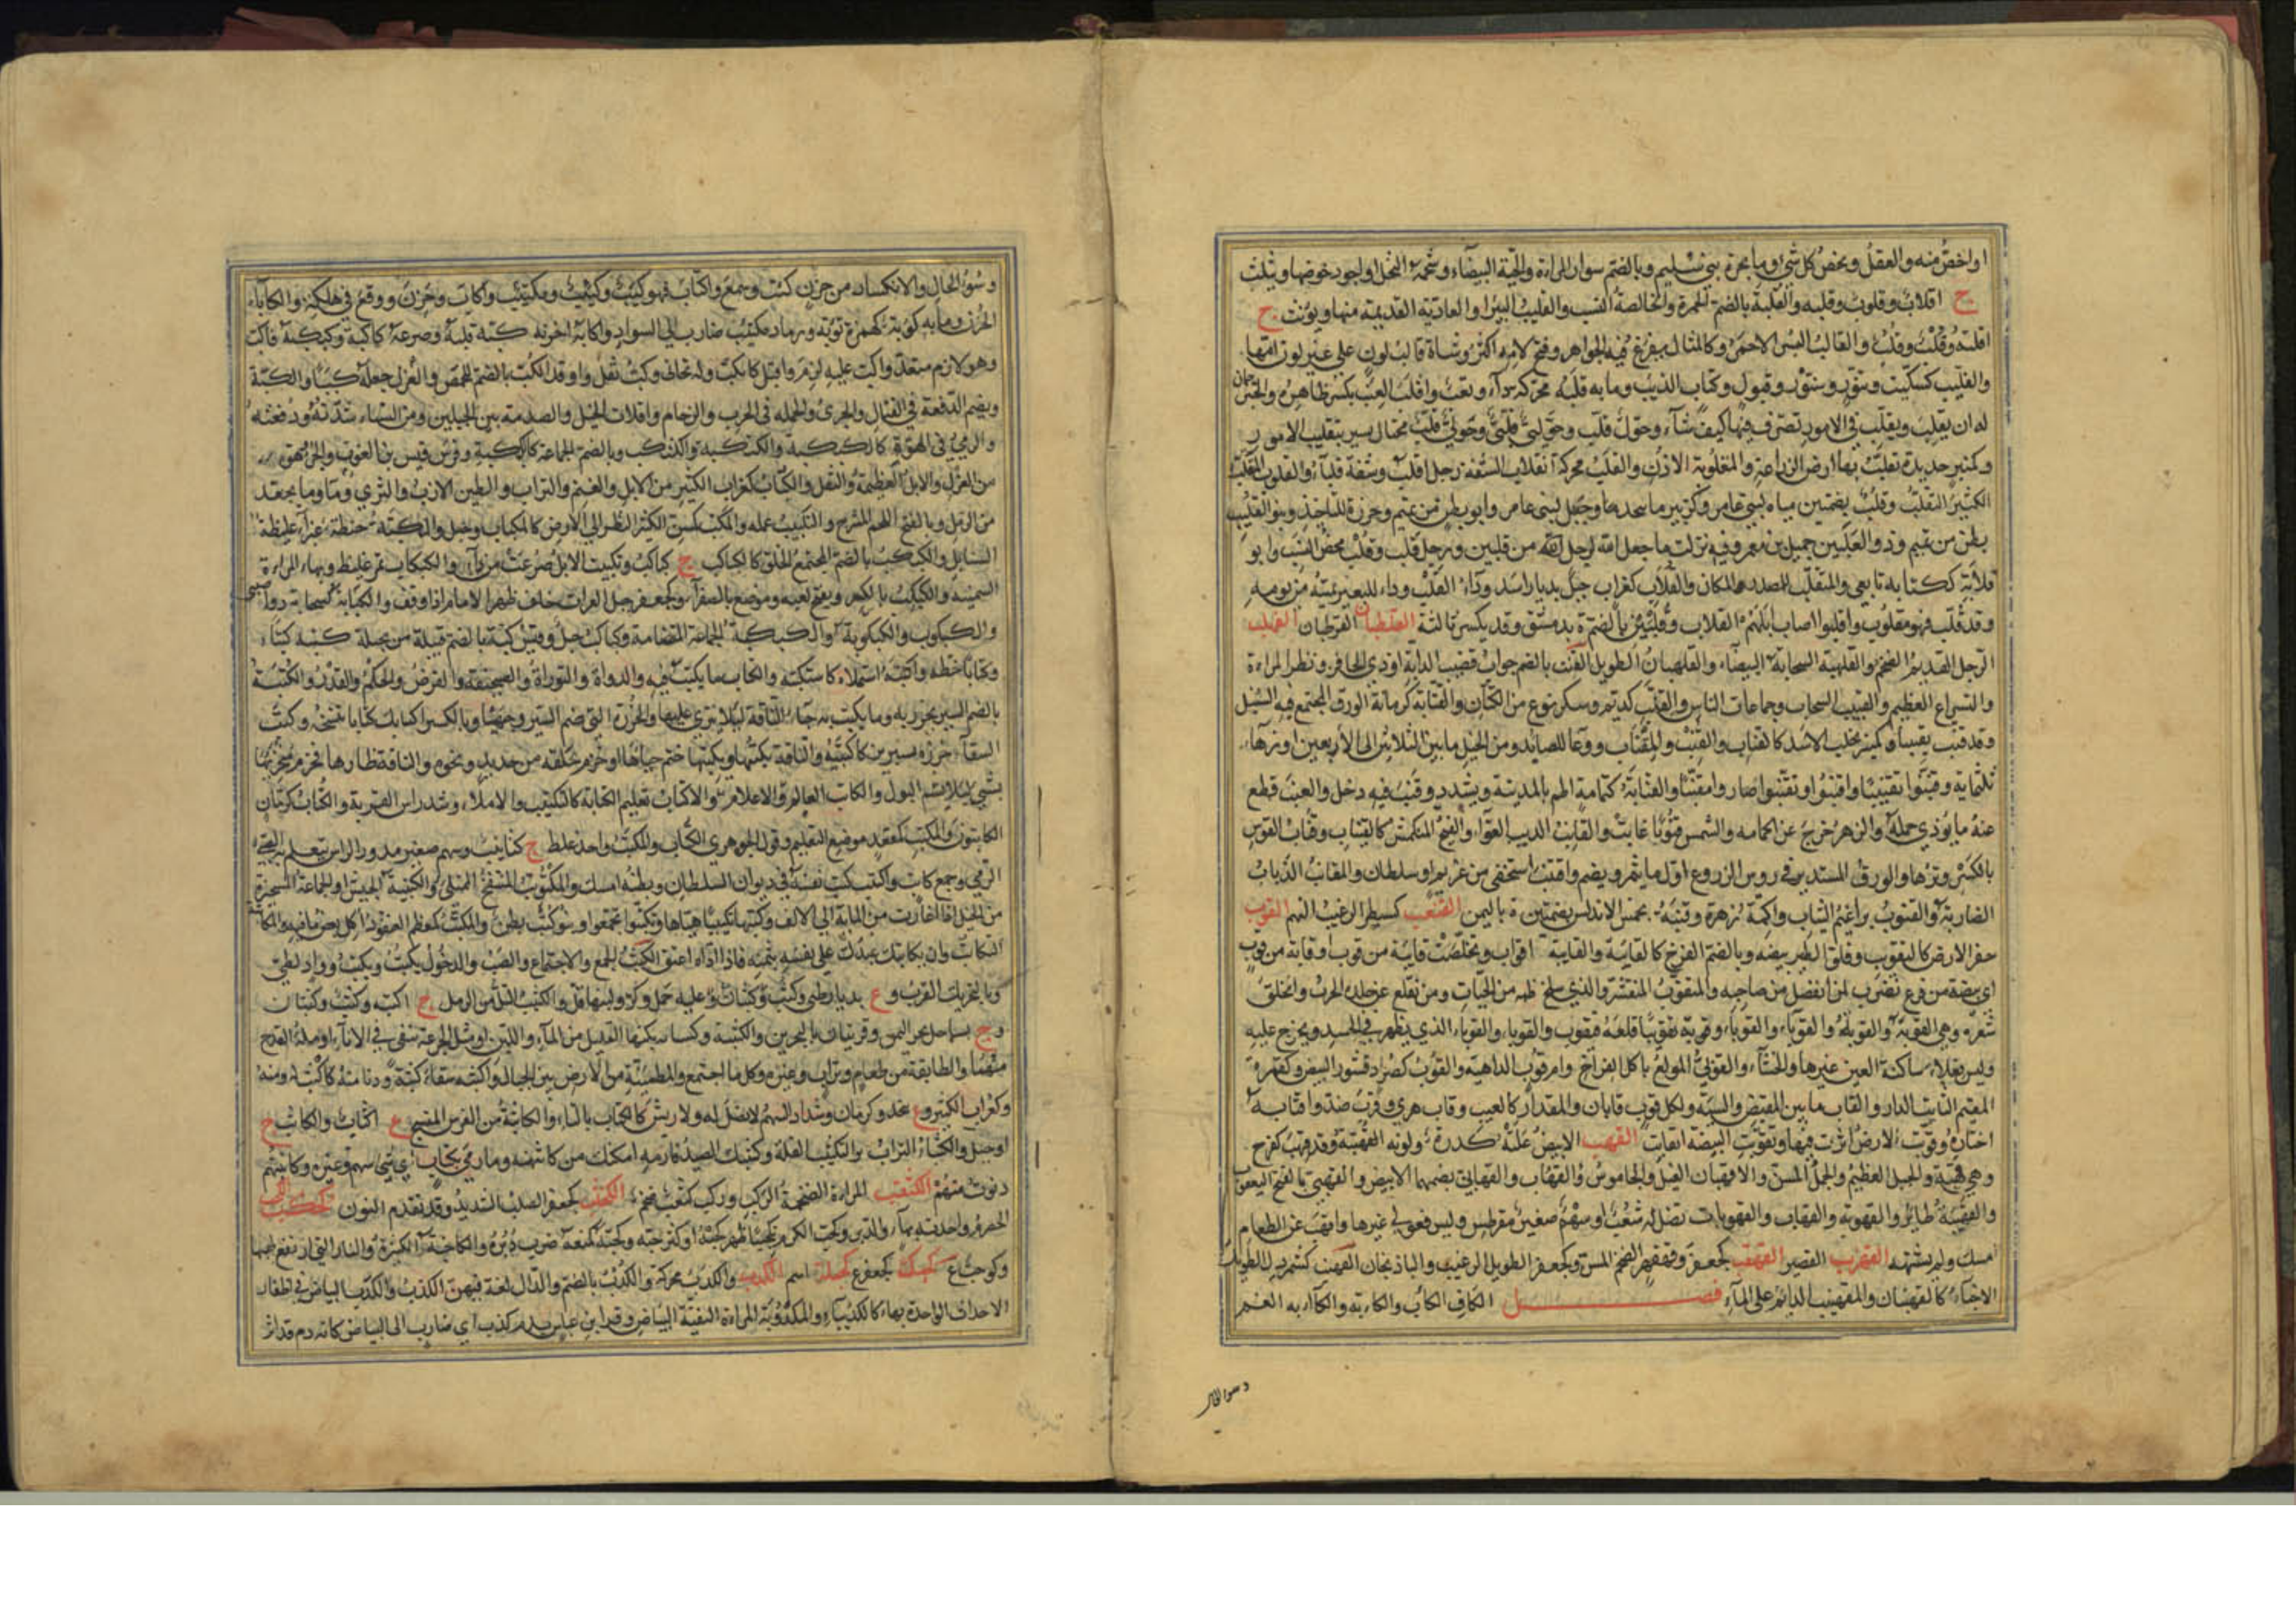 او اخص منه والعقل ومحض كل شئ وماء بحرة بني سليم وبالضم سوار المراة والحية البيضاء وشحمة النخل او اجود خوصها ويثلث
ج اقلاب وقلوب وقلبه والقلبة بالضم الحمرة والخالصة النسب والقليب البئر او العادية القديمة منها ويؤنث ج
اقلبة وقلب وقلب والقالب البسر الاحمر وكالمثال يفرغ فيه الجواهر وفتح لامه اكثر وشاة قالب لون على غير لون امها
والقليب كسكيت وتنور وسنور وقبول وكتاب الذئب وما به قلبة محركة داء وتعب واقلب العنب يبس ظاهره والخبز حان
له ان يقلب وتقلب في الامور تصرف فيها كيف شاء وحول قلب وحولي قلبي وحولي قلب محتال بصير بتقليب الامور
وكمنبر حديدة تقلب بها ارض الزراعة والمقلوبة الاذن والقلب محركة انقلاب الشفة رجل اقلب وشفة قلباء والقلوب المتقلب
الكثير التقلب وقلب بضمتين مياه لبني عامر وكزبير ماء بنجد لربيعة وجبل لبني عامر وابو بطن من تميم وخرزة للتاخيذ وبنو القليب
بطن من تميم وذو القلبين جميل بن معمر وفيه نزلت ما جعل الله لرجل من قلبين ورجل قلب وقلب محض النسب وابو
قلابة ككتابه تابعي والمنقلب للمصدر والمكان والقلاب كغراب جبل بديار اسد وداء القلب وداء للبعير يميته من يومه
وقد قلب فهو مقلوب واقلبوا اصاب ابلهم القلاب وقلبين بالضم ة بدمشق وقد يكسر ثالثه القلطبان القرطبان القهب
الرجل القديم الضخم والقلهبة السحابة البيضاء والقلهبان الطويل القنب بالضم جراب قضيب الدابة او ذي الحافر وبظر المراة
والشراع العظيم والقنيب السحاب وجماعات الناس والقنب كدنم وسكر نوع من الكتان والقنابة كرمانة الورق المجتمع فيه السنبل
وقد قنب تقنيبا وكمنبر مخلب الاسد كالقناب والقنب والمقناب ووعاء للصائد ومن الخيل ما بين الثلاثين الى الاربعين او زهاء
ثلثماية وقنبوا تقنيبا واقنبوا وتقنبوا صاروا مقنبا والقنابة كثمامة اطم بالمدينة ويشدد وقنب فيه دخل والعنب قطع
عنه ما يؤذي حمله والزهر خرج عن اكمامه والشمس قنوبا غابت والقانب الذيب العواء والفيج المنكمش كالقيناب وقناب القوس
بالكسر وترها والورق المستدير في رؤس الزروع اول ما يثمر ويضم واقتنب استخفى من غريم او سلطان والمقانب الذئاب
الضارية والقنوب براعيم النبات واكمة زهره وقنبة بحمص الاندلس بضمتين ة باليمن القنعب كسبطر الرغيب النهم القوب
حفر الارض كالتقويب وفلق الطير بيضه وبالضم الفرخ كالقابة والقابية ج اقواب وتخلصت قابية من قوب او قابة من قوب اي
بيضة من فرخ يضرب لمن انفصل من صاحبه والمتقوب المتقشر والذي سلخ جلده من الحيات ومن تقلع عن جلده الجرب وانحلق
شعره وهي القوبة والقوبة والقوباء والقوباء وقوبه تقويبا قلعه فتقوب والقوباء والقوباء الذي يظهر في الجسد ويخرج عليه
وليس فعلاء ساكنة العين غيرها والخشاء والقوبي المولع باكل الفراخ وام قوب الداهية والقوب كصرد قشور البيض وكهمزة
المقيم الثابت الدار والقاب ما بين المقبض والسية ولكل قوس قابان والمقدار كالقيب وقاب هرب وقرب ضد واقتابه
اختاره وقوبت الارض اثرت فيها وتقوبت البيضة انقابت القهب الابيض علته كدرة ولونه القهبة وقد قهب كفرح
وهي قهبة والجبل العظيم والجمل المسن والاقهبان الفيل والجاموس والقهاب والقهابي بضمهما الابيض والقهبي بالفتح اليعقوب
والقهيبة طائر والقهوبة والقهاب والقهوبات نصل له شعب او سهم صغير مقرطس وليس فعولى غيرها واقهب عن الطعام
امسك ولم يشتهه القهزب القصير القهقب كجعفر وقهقم الضخم المسن وكجعفر الطويل الرغيب والباذنجان القهنب كشمردل الطويل
الاجناء كالقهبان والمقهنب الدائم على الماء فصل الكاف الكاب والكابة والكآبة الغم
وسوء الحال
وسوء الحال والانكسار من حزن كئب كسمع واكتاب فهو كئب وكئيب ومكتئب واكاب وحزن ووقع في هلكة والكاباء
الحزن وما به كؤبة كهمزة توبة ورماد مكتئب ضارب الى السواد واكابه احزنه كبه قلبه وصرعه كاكبه وكبكبه فاكب
وهو لازم متعد واكب عليه لزم واقبل كانكب وله تحانى وكب ثقل واوقد الكب بالضم للحمض والغزل جعله كببا والكبة
ويضم الدفعة في القتال والجري والحملة في الحرب والزحام وافلات الخيل والصدمة بين الجبلين ومن الشتاء شدته ودفعته
والرمي في الهوة كالكبكبة والكبكبة والكبكب وبالضم الجماعة كالكبكبة وفرس قيس بن الغوث والجروهق
من الغزل والابل العظيمة والثقل والكباب كغراب الكثير من الابل والغنم والتراب والطين اللازب والثرى وماء وما تجعد
من الرمل وبالفتح اللحم المشرح والتكبيب عمله والمكب كمسن الكثير النظر الى الارض كالمكباب وجبل والمكببة حنطة غبراء غليظة
السنابل والكبكب بالضم المجتمع الخلق كالكباكب ج كباكب وتكبت الابل صرعت من داء والكبكاب تمر غليظ وبهاء المراة
السمينة والكبكب بالكسر ويفتح لعبة وموضع بالصفراء وكجعفر جبل بعرفات خلف ظهر الامام اذا وقف والكبابة كسحابة دواء صيني
والكبكوب والكبكوبة والكبكبة الجماعة المتضامة وكباب جبل وقيس كبة بالضم قبيلة من بجيلة كتبه كتبا
وكتابا خطه واكتتبه استملاه كاستكتبه والكتاب ما يكتب فيه والدواة والتوراة والصحيفة والفرض والحكم والقدر والكتبة
بالضم السير يخرز به وما يكتب به حياء الناقة ليلا ينزى عليها والخرزة التي ضم السير وجهيها وبالكسر اكتتابك كتابا تنسخه وكتب
السقاء خرزه بسيرين كاكتبه والناقة يكتبها ويكتبها ختم حياءها او خزم بحلقة من حديد ونحوه والناقة ظارها فخزم منخريها
بشئ ليلا تشم البول والكاتب العالم والاكتاب تعليم الكتابة كالتكتيب والاملاء وشد راس القربة والكتاب كرمان
الكاتبون والمكتب كمقعد موضع التعليم وقول الجوهري الكتاب والمكتب واحد غلط ج كتاتيب وسهم صغير مدور الراس يتعلم به الصبي
الرمي وجمع كاتب واكتتب كتب نفسه في ديوان السلطان وبطنه امسك والمكتوتب المنتفخ الممتلئ والكتيبة الجيش او الجماعة المستحيزة
من الخيل اذا اغارت من المائة الى الالف وكتبها تكتيبا هياها وتكتبوا تجمعوا وبنو كتب بطن والمكتب كمعظم العنقود اكل بعض ما فيه والمكاتبة
التكاتب وان يكاتبك عبدك على نفسه بثمنه فاذا اداه اعتق الكثب الجمع والاجتماع والصب والدخول يكثب ويكثب وواد لطيئ
وبالتحريك القرب وع بديار طيئ وكثب وكثاب وعليه حمل وكر ولبنها قل والكثيب التل من الرمل ج اكثبه وكثب وكثبان
وج بساحل بحر اليمن وقريتان بالبحرين والكثبة وكنانته نكبها القليل من الماء واللبن او مثل الجرعة تبقى في الاناء او ملء القدح
منهما والطائفة من طعام وتراب وغيره وكل ما اجتمع والمطمئنة من الارض بين الجبال واكثبه سقاه كثبة ودنا منه كاكثب له ومنه
وكغراب الكثير وع بنجد وكرمان وشداد السهم لا نصل له ولا ريش كالكتاب بالتاء والكاثبة من الفرس المنسج ع اكثاب والكاثب ج
او جبل والكثباء التراب والتكثيب القلة وكثبك الصيد فارمه امكنك من كاثبته وما رمى بكثاب اي شئ سهم وغيره وكاثبتهم
دنوت منهم الكثعب المراة الضخمة الركب وركب كثعب ضخم الكثنب كجعفر الصلب الشديد وقد تقدم النون الكحب
الحصرم واحدته بهاء والدبر وكحب الكرم تكحيبا ظهر كحبه او كثر حبه وكحبه كمنعه ضرب دبره والكاحبة الكثيرة والنار التي ارتفع لهبها
وكوحب ع كحكب كجعفر ع كحلب اسم الكدب والكدب محركة والكدب بالضم والدال لغة فيهن الكذب والكدب البياض في اظفار
الاحداث الواحدة بهاء كالكديباء والمكدوبة المراة النقية البياض وقرا ابن عباس بدم كذب اي ضارب الى البياض كانه دم قد اثر